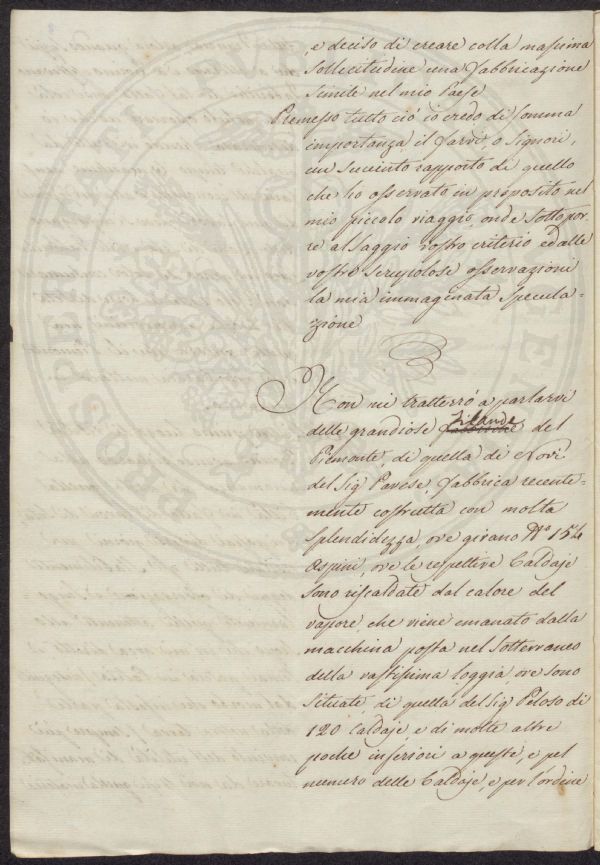 e deciso di creare colla massima
sollecitudine una fabbricazione
simile nel mio Paese
Premesso tutto ciò io credo di somma
importanza il farvi, o Signori,
un succinto rapporto di quello
che ho osservato in proposito nel
mio piccolo viaggio, onde sottopor-
re al saggio vostro criterio ed alle
vostre scrupolose osservazioni
la mia immaginata specula-
zione
Non mi tratterrò a parlarvi
delle grandiose filande del
Piemonte, di quella di Novi
del Sig. Pavese, fabbrica recente-
mente costrutta con molta
splendidezza, ove girano N.º 154
Aspini, ove le respettive Caldaje
sono riscaldate dal calore del
vapore, che viene emanato dalla
macchina posta nel sotterraneo
della vastissima loggia, ove sono
situate, di quella del Sig. Peloso di
120 Caldaje, e di molte altre
poche inferiori a queste, e pel
numero delle Caldaje, e per l'ordine
PROSPERITATI PVB